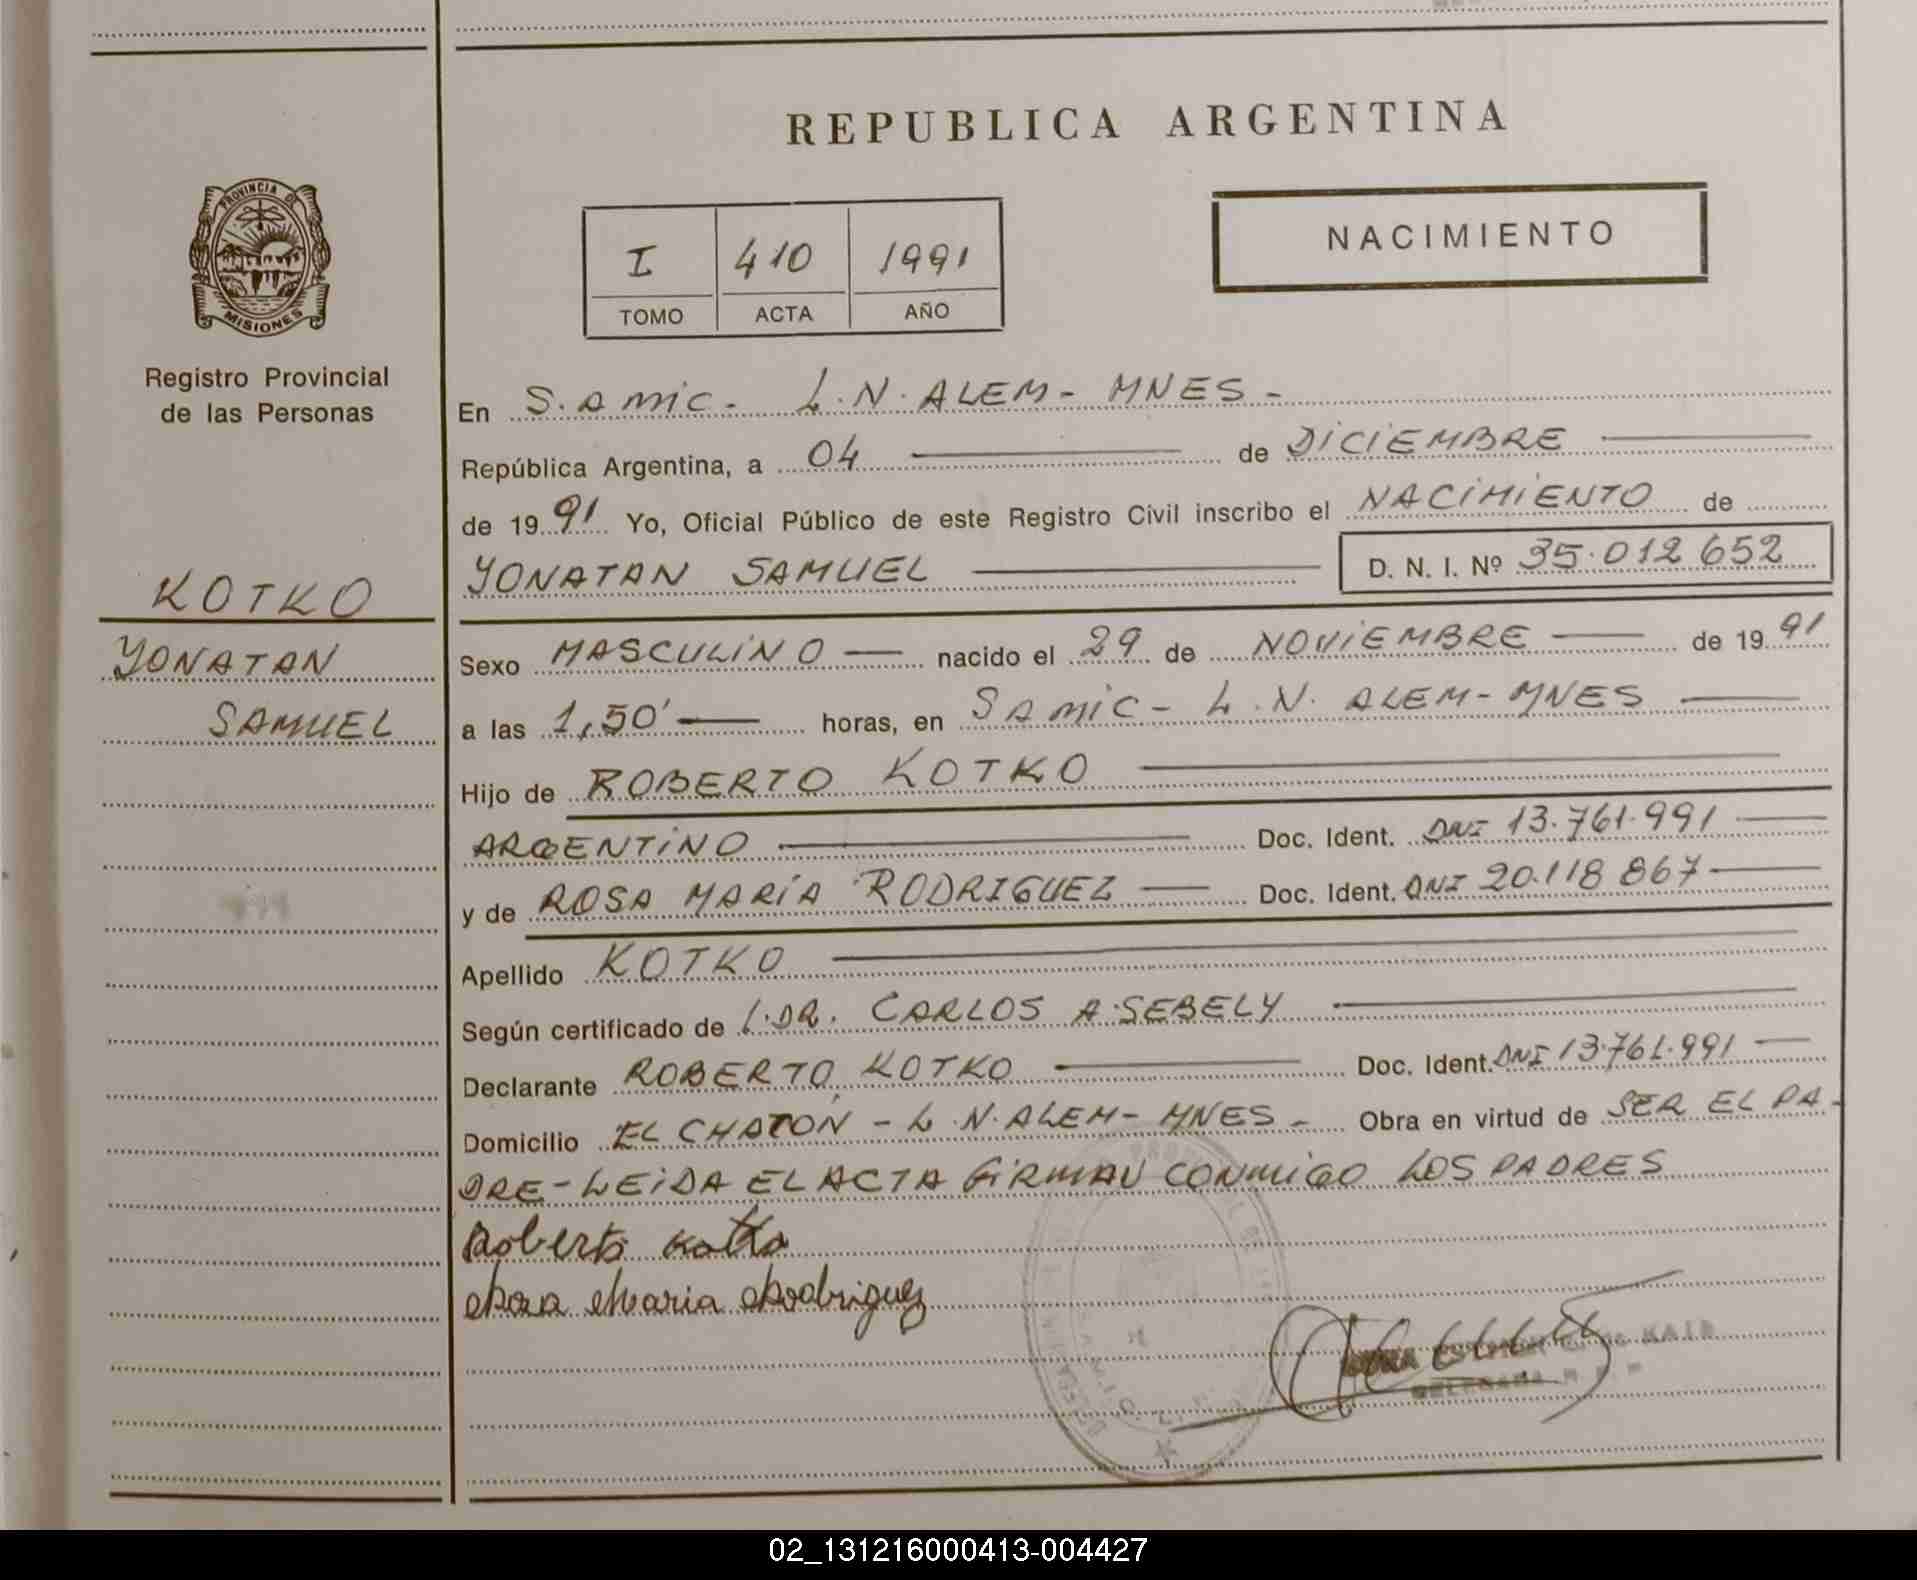 REPUBLICA ARGENTINA
PROVINCIA DE
MISIONES
Registro Provincial
de las Personas
I 410 1991
TOMO ACTA AÑO
NACIMIENTO
KOTKO
YONATAN
SAMUEL
En S. AMIC. L.N. ALEM - MNES -
República Argentina, a 04 de DICIEMBRE
de 1991 Yo, Oficial Público de este Registro Civil inscribo el NACIMIENTO de
YONATAN SAMUEL D. N. I. Nº 35.012652
Sexo MASCULINO nacido el 29 de NOVIEMBRE de 1991
a las 1,50' horas, en SAMIC - L.N. ALEM - MNES
Hijo de ROBERTO KOTKO
ARGENTINO Doc. Ident. DNI 13.761.991
y de ROSA MARÍA RODRIGUEZ Doc. Ident. DNI 20.118 867
Apellido KOTKO
Según certificado de DR. CARLOS A. SEBELY
Declarante ROBERTO KOTKO Doc. Ident. DNI 13.761.991
Domicilio EL CHATÓN - L.N. ALEM - MNES - Obra en virtud de SER EL PA-
DRE - LEIDA EL ACTA FIRMAN CONMIGO LOS PADRES
Roberto Kotko
Rosa Maria Rodriguez
02_131216000413-004427